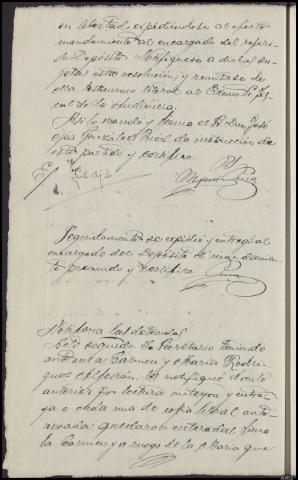 en libertad, expidiéndose al efecto
mandamiento al encargado del referi-
do Depósito. Notifíquese a dichas su-
jetas esta resolución; y remítase de
ella testimonio literal al Excmo. Sr. Fis-
cal de la Audiencia.
Así lo mandó y firma el Sr. Don José
González Juez de instrucción de
este partido y certifico.
Seguidamente se expidió y entregó al
encargado del Depósito el mandamien-
to prevenido y certifico.
Not. a las detenidas
Acto seguido yo Secretario teniendo
ante mí a Carmen y María Rodrí-
guez les notifiqué el auto
anterior por lectura íntegra y entre-
ga a cada una de copia literal auto-
rizada: quedaron enteradas, firma
la Carmen y a ruego de la María que